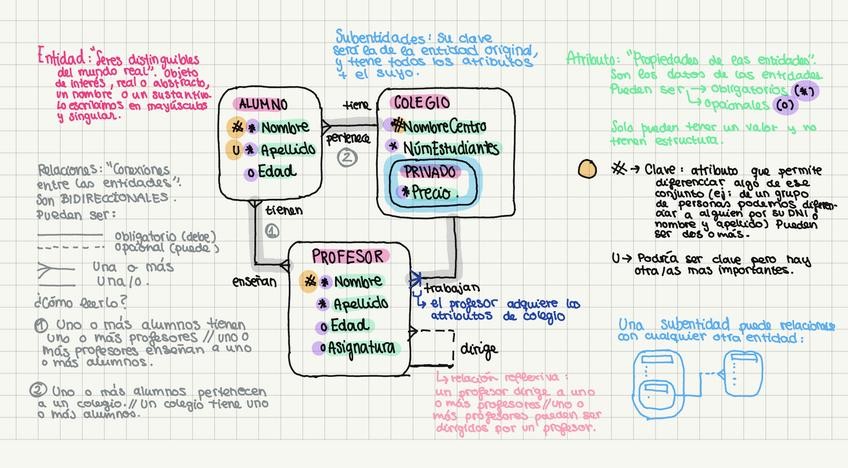 Entidad: "Seres distinguibles
del mundo real". Objeto
de interés, real o abstracto,
un nombre o un sustantivo.
Lo escribimos en mayúsculas
y singular.
Subentidades: Su clave
será la de la entidad original,
y tiene todos los atributos
+ el suyo.
Atributo: "Propiedades de las entidades".
Son los datos de las entidades.
Pueden ser → obligatorios (*)
→ opcionales (o)
Solo pueden tener un valor y no
tienen estructura.
ALUMNO
# * Nombre
U * Apellido
o Edad
tiene
pertenece
②
COLEGIO
# NombreCentro
* NúmEstudiantes
PRIVADO
* Precio.
Relaciones: "Conexiones
entre las entidades".
Son BIDIRECCIONALES.
Pueden ser:
obligatorio (debe)
opcional (puede)
Una o más
Una/o.
¿Cómo leerlo?
① Uno o más alumnos tienen
uno o más profesores // uno o
más profesores enseñan a uno
o más alumnos.
② Uno o más alumnos pertenecen
a un colegio. // Un colegio tiene uno
o más alumnos.
tienen
①
enseñan
PROFESOR
# * Nombre
* Apellido
o Edad
o Asignatura
trabajan
↳ el profesor adquiere los
atributos de colegio
dirige
↳ relación reflexiva:
un profesor dirige a uno
o más profesores // uno o
más profesores pueden ser
dirigidos por un profesor.
# → Clave: atributo que permite
diferenciar algo de ese
conjunto (ej: de un grupo
de personas podemos diferen-
ciar a alguien por su DNI o
nombre y apellido) Pueden
ser dos o más.
U → Podría ser clave pero hay
otra/as mas importantes.
Una subentidad puede relacionarse
con cualquier otra entidad: